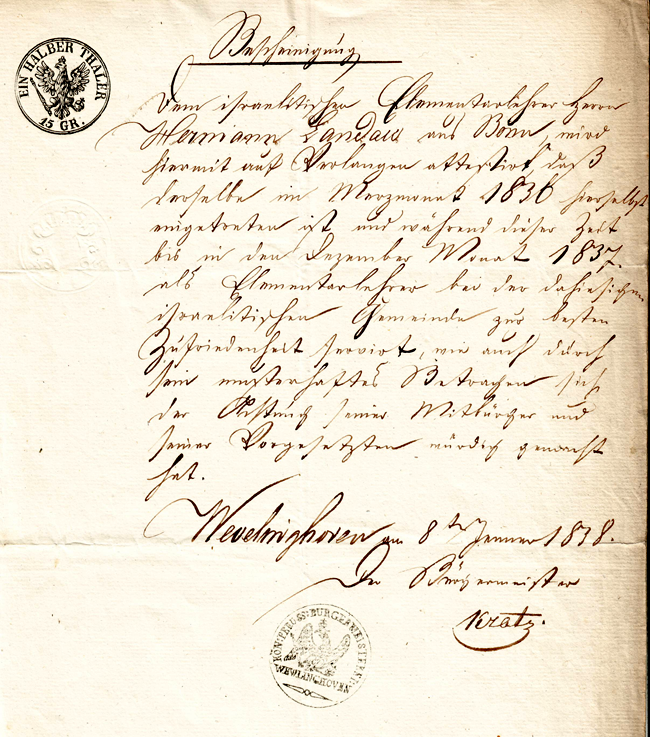 Bescheinigung
EIN HALBER THALER
15 GR.
Dem israelitischen Elementarlehrer Herrn
Hermann Landau aus Bonn, wird
hiermit auf Verlangen attestirt, daß
derselbe im Merzmonat 1836 hierselbst
eingetreten ist und während dieser Zeit
bis in den Dezember Monat 1837.
als Elementarlehrer bei der dahiesigen
israelitischen Gemeinde zur besten
Zufriedenheit servirt, wie auch durch
sein musterhaftes Betragen sich
der Achtung seiner Mitbürger und
seiner Vorgesetzten würdig gemacht
hat.
Wevelinghoven am 8ten Jenner 1838.
Der Bürgermeister
Kratz.
KÖN: PREUSS: BÜRGERMEISTEREI
WEVLINGHOVEN